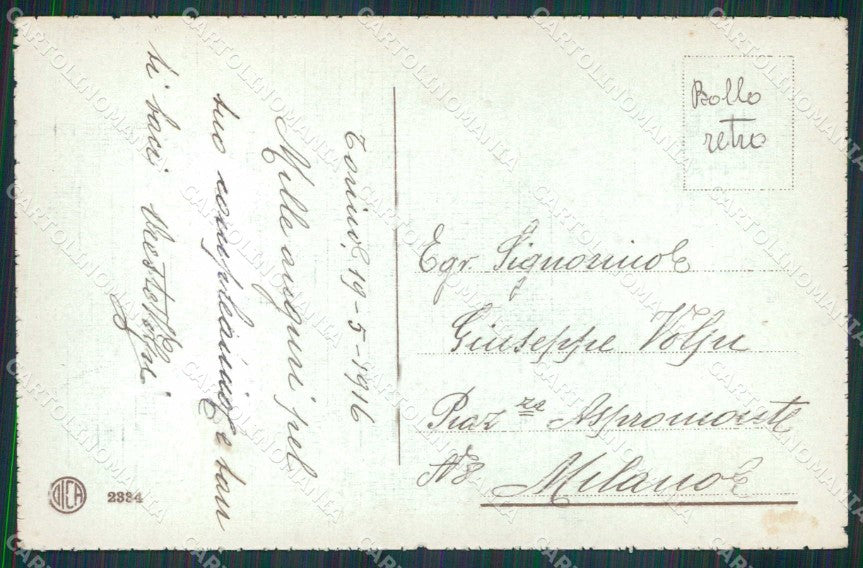 Torino, 19-5-1916
Mille auguri pel
tuo compleanno e tan
ti baci
Bollo
retro
Egr. Signorino
Giuseppe Volpi
Piaz.za Aspromonte
N8 Milano
DICA 2334
CARTOLINOMANIA